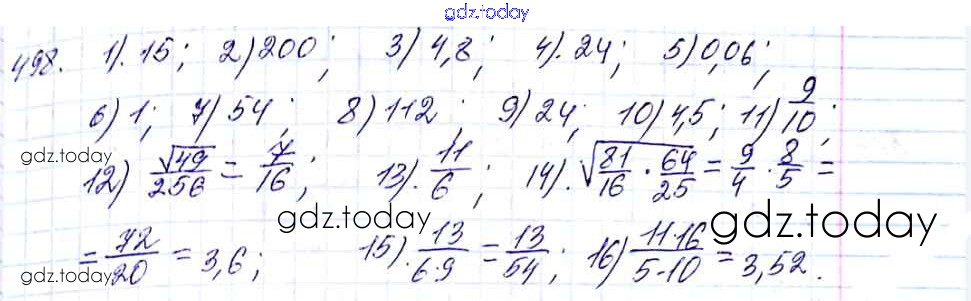 gdz.today
498. 1). 15; 2) 200; 3) 4,8; 4). 24; 5) 0,06;
6) 1; 7) 54; 8) 112; 9) 24; 10) 4,5; 11) 9/10;
gdz.today
12) √49/256 = 7/16; 13). 11/6; 14). √(81/16 · 64/25) = 9/4 · 8/5 =
gdz.today gdz.today
= 72/20 = 3,6; 15). 13/(6·9) = 13/54; 16) (11·16)/(5·10) = 3,52.
gdz.today